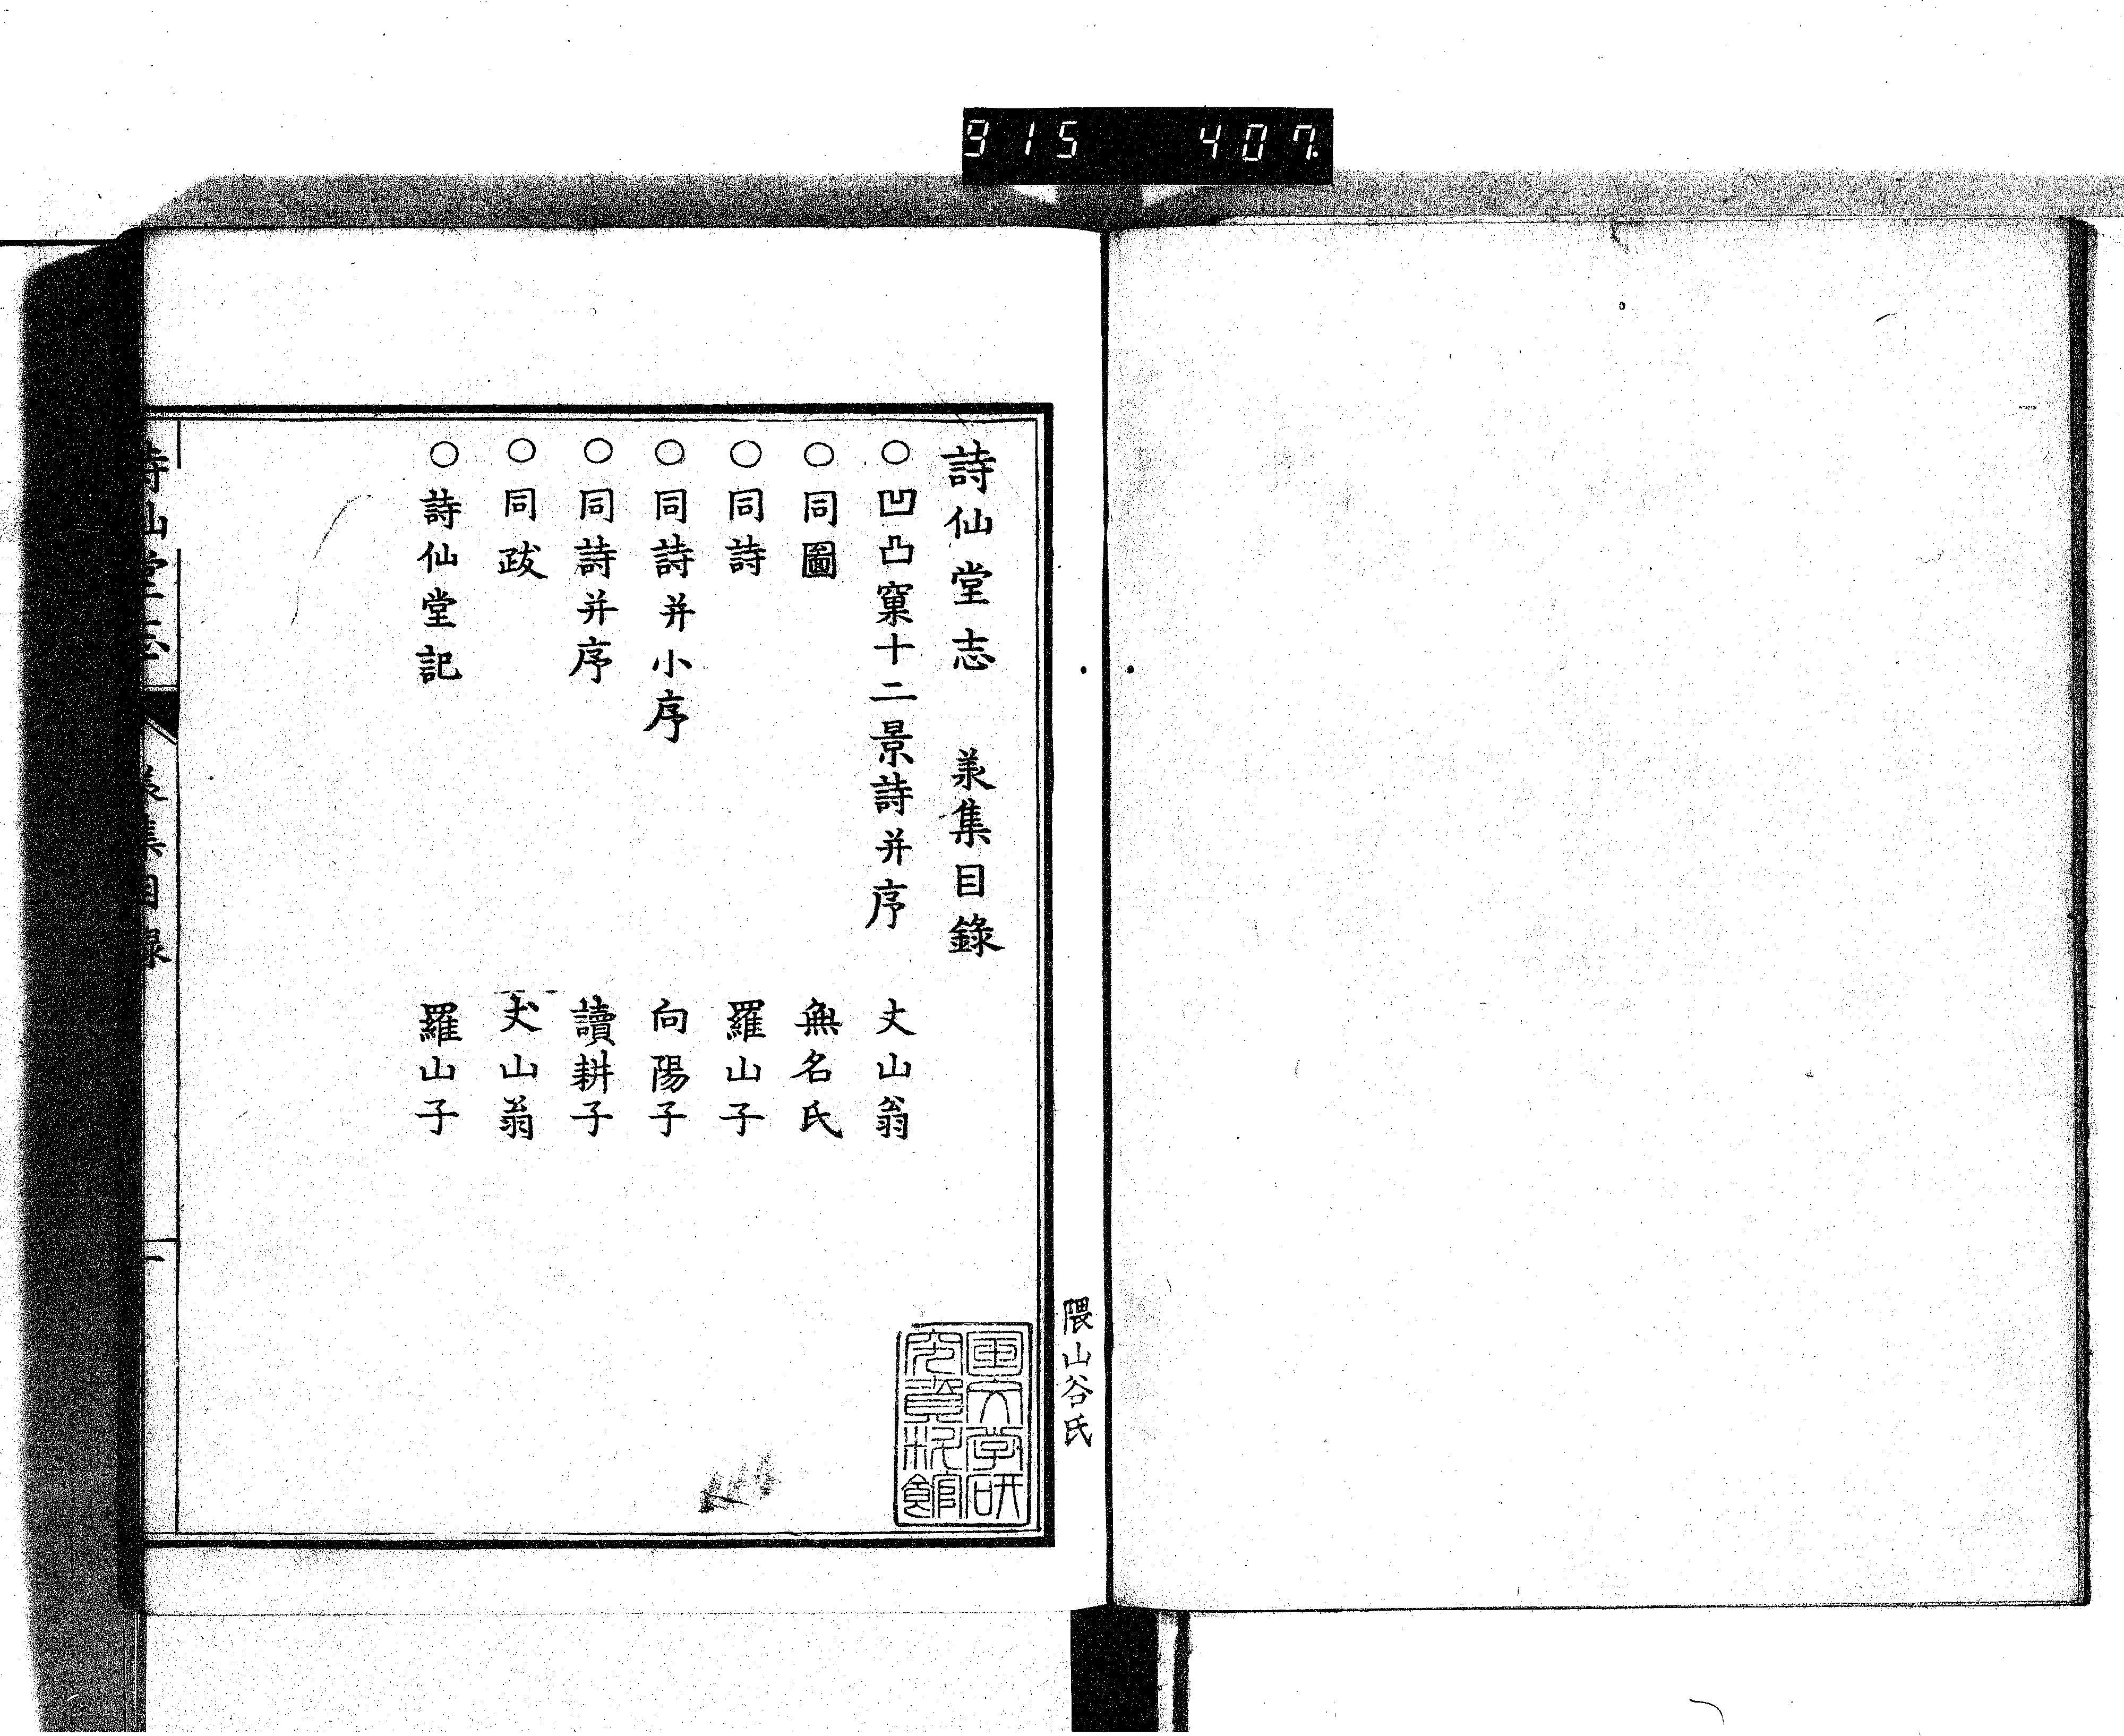 915 407.
隈山谷氏
詩仙堂志 羕集目錄
○凹凸窠十二景詩并序 丈山翁
○同圖 無名氏
○同詩 羅山子
○同詩并小序 向陽子
○同詩并序 讀耕子
○同跋 丈山翁
○詩仙堂記 羅山子
国文学研
究資料館
詩仙堂志 羕集目錄 一